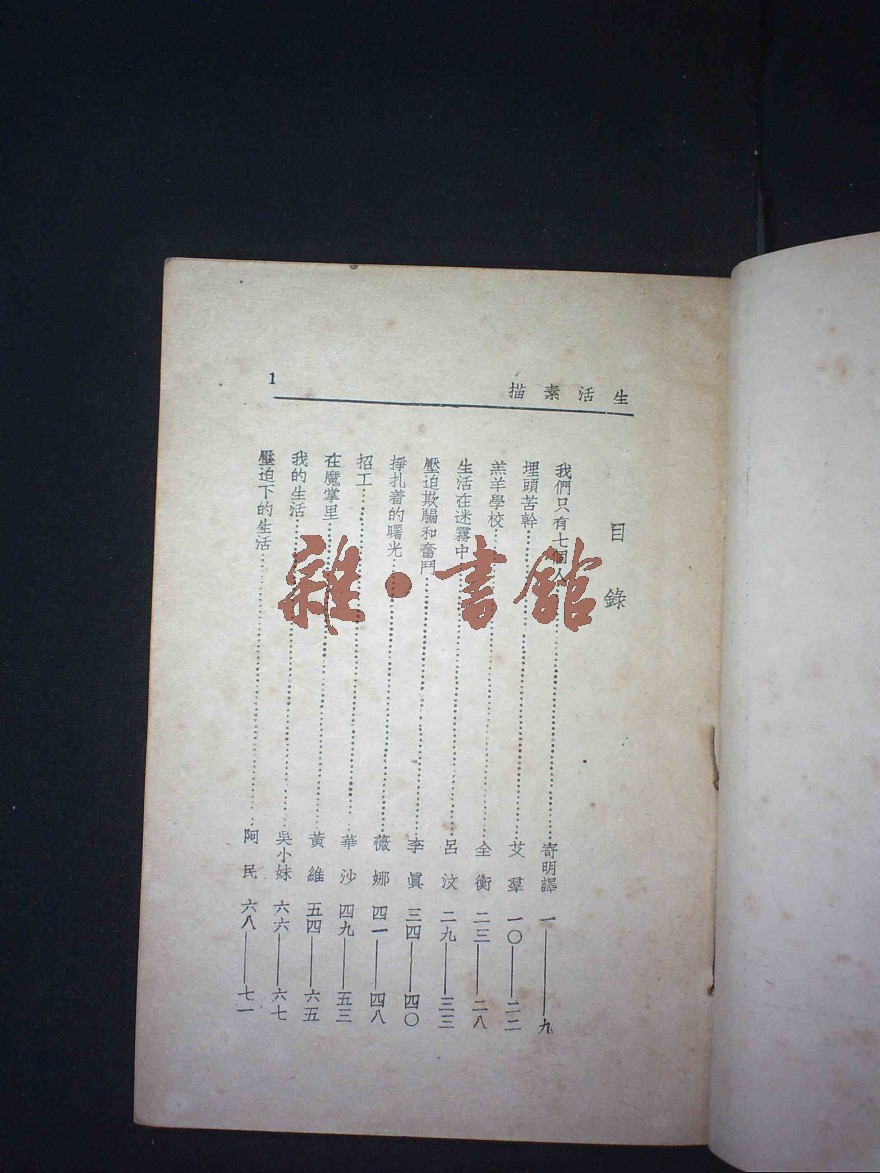 生活素描
1
目錄
我們只有七個人……寄明譯 一——九
埋頭苦幹……艾羣 一〇——二二
羔羊學校……全衡 二三——二八
生活在迷霧中……呂汶 二九——三三
壓迫欺騙和奮鬥……李眞 三四——四〇
掙扎着的曙光……薇娜 四一——四八
招工……華沙 四九——五三
在魔掌里……黃維 五四——六五
我的生活……吳小妹 六六——六七
壓迫下的生活……阿民 六八——七一
雜·書館